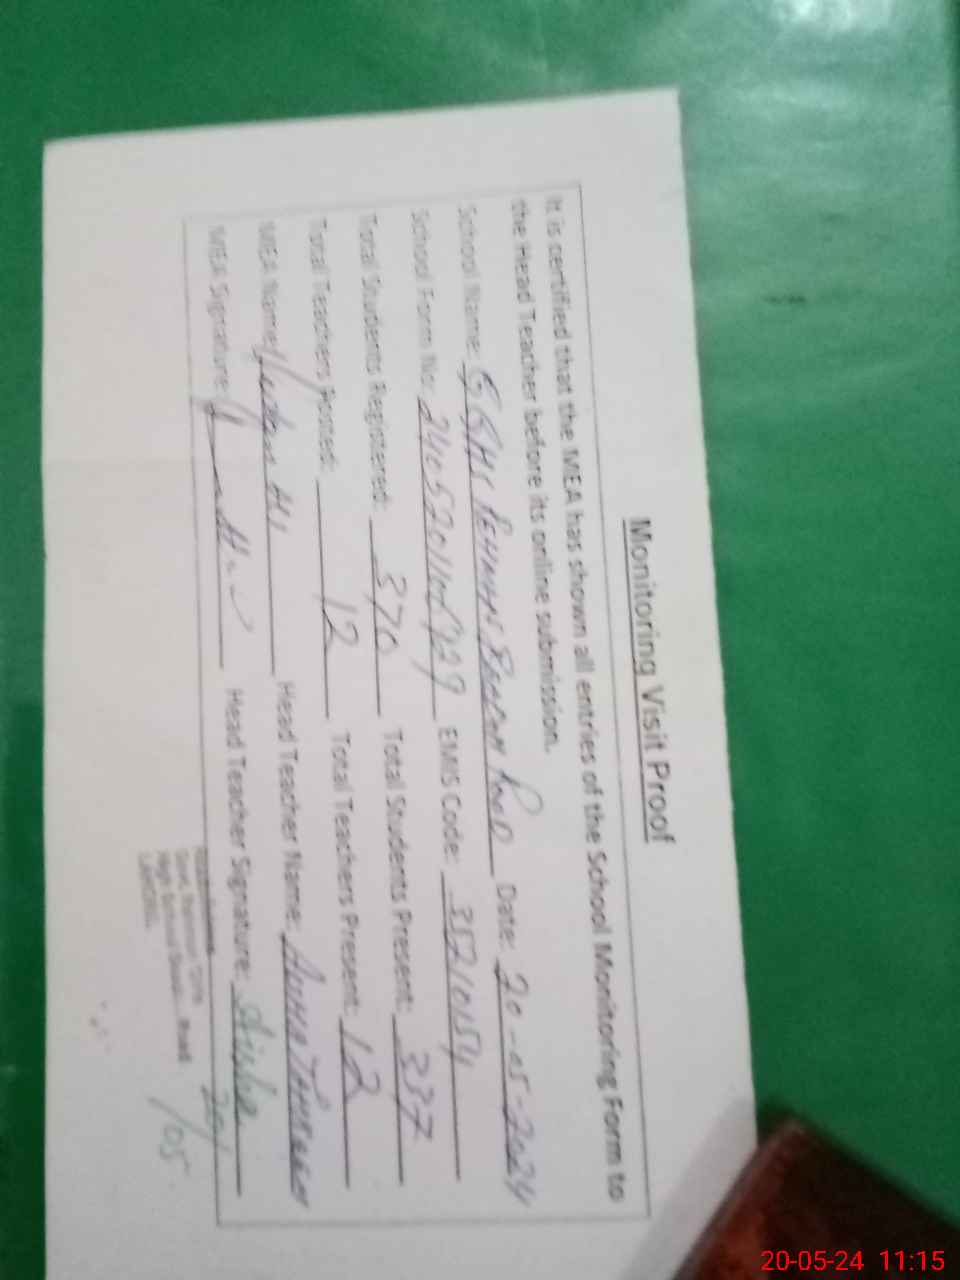 Monitoring Visit Proof
It is certified that the MEA has shown all entries of the School Monitoring Form to
the Head Teacher before its online submission.
School Name: GGHS Road Date: 20-05-2024
School Form No: EMIS Code: 35210154
Total Students Registered: 370 Total Students Present: 337
Total Teachers Posted: 12 Total Teachers Present: 12
MEA Name: Head Teacher Name:
MEA Signature: Head Teacher Signature: Aisha
High School Road
LAHORE.
20-05-24 11:15